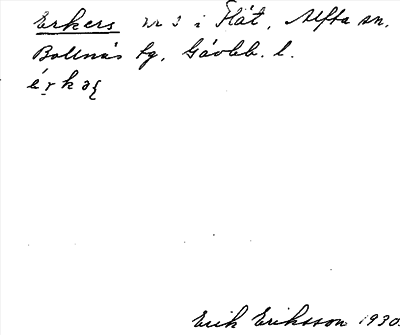 Erkers nr 3 i Flåt, Alfta sn.
Bollnäs tg, Gävleb. l.
Erik Eriksson 1930.